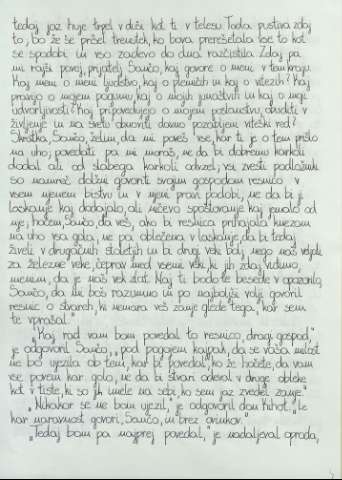 tedaj jaz huje trpel v duši kot ti v telesu. Toda pustiva zdaj
to, bo že še prišel trenutek, ko bova premlela vse to kot
se spodobi in vso zadevo do dna razčistila. Zdaj pa
mi rajši povej, prijatelj Sančo, kaj govore o meni v tem kraju.
Kaj meni o meni ljudstvo, kaj o plemičih in kaj o vitezih? Kaj
pravijo o mojem pogumu, kaj o mojih junaštvih in kaj o moji
udvorljivosti? Kaj pripovedujejo o mojem poslanstvu, obuditi v
življenje in na svetu obnoviti davno pozabljeni viteški red?
Skratka, Sančo, želim, da mi poveš vse, kar ti je o tem prišlo
na uho; povedati pa mi moraš, ne da bi dobremu karkoli
dodal ali od slabega karkoli odvzel; vsi zvesti podložniki
so namreč dolžni govoriti svojim gospodom resnico v
vsem njenem bistvu in v njeni pravi podobi, ne da bi ji
laskanje kaj dodajalo, ali ničevo spoštovanje kaj jemalo od
nje; hočem, Sančo, da veš, ako bi resnica prihajala knezom
na uho vsa gola, ne pa oblečena v laskanje, da bi tedaj
živeli v drugačnih stoletjih in bi drugi veki bolj nego naš veljali
za železne veke, čeprav med vsemi veki, ki jih zdaj vidimo,
menim, da je naš vek zlat. Naj ti bodo te besede v opozorilo,
Sančo, da mi boš razumno in po najboljši volji govoril
resnico o stvareh, ki nemara veš zanje glede tega, kar sem
te vprašal."
"Kaj rad vam bom povedal to resnico, dragi gospod,"
je odgovoril Sančo, "pod pogojem kajpak, da se vaša milost
ne bo ujezila ob tem, kar bi povedal, ko že hočete, da vam
vse povem kar golo, ne da bi stvari odeval v druge obleke
kot v tiste, ki so jih imele na sebi, ko sem jaz zvedel zanje."
"Nikakor se ne bom ujezil," je odgovoril don Kihot. "Le
kar naravnost govori, Sančo, in brez ovinkov."
"Tedaj bom pa najprej povedal," je nadaljeval oproda,